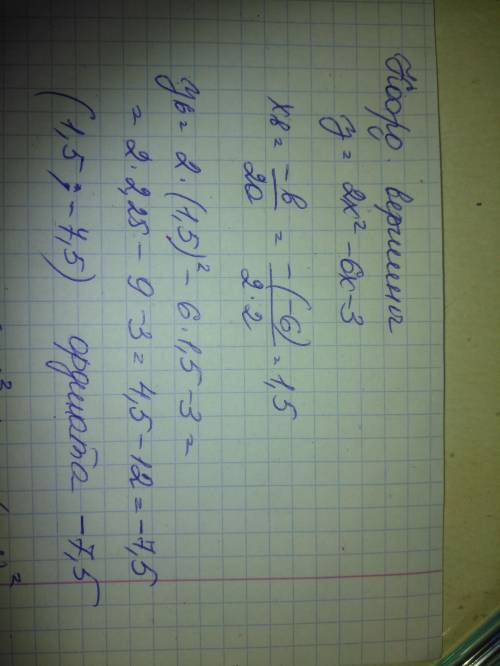 Коорд. вершины
y = 2x² - 6x - 3
xв = -в/2a = -(-6)/2·2 = 1,5
yв = 2·(1,5)² - 6·1,5 - 3 =
= 2·2,25 - 9 - 3 = 4,5 - 12 = -7,5
(1,5; -7,5) ордината -7,5